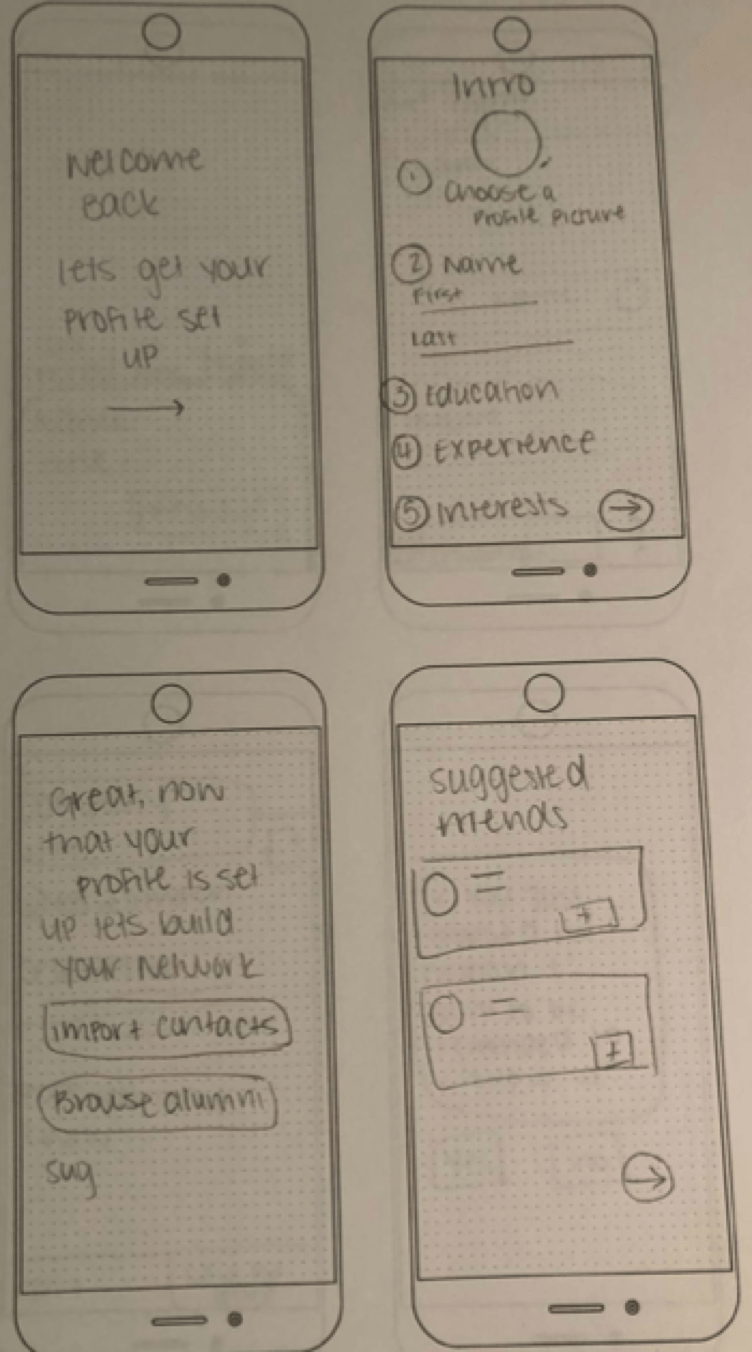 Welcome
Back
lets get your
profile set
up
Intro
① Choose a
Profile Picture
② Name
First
Last
③ Education
④ Experience
⑤ Interests
Great, now
that your
profile is set
up lets build
your network
import contacts
Browse alumni
sug
suggested
friends
+
+